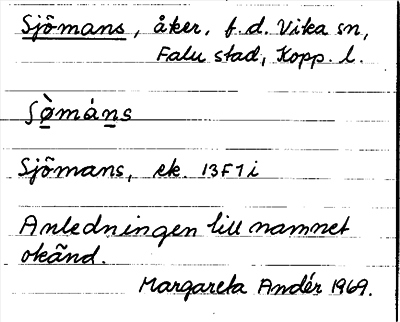 Sjömans, åker, f.d. Vika sn,
Falu stad, Kopp. l.
ʃø̀máns
Sjömans, ek. 13F7i
Anledningen till namnet
okänd.
Margareta Andér 1969.